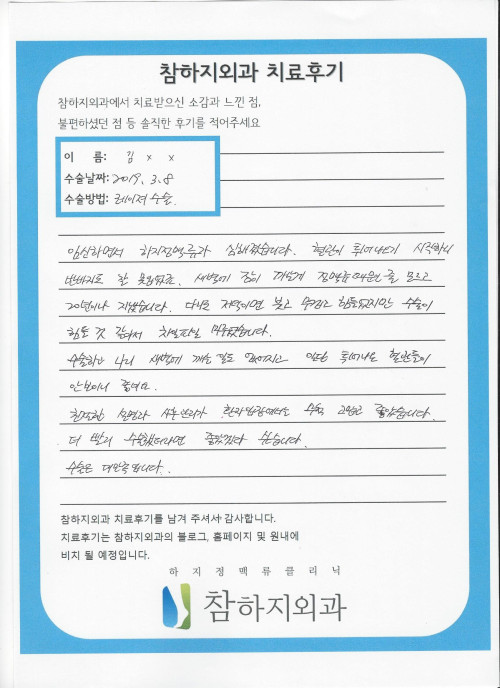 참하지외과 치료후기
참하지외과에서 치료받으신 소감과 느낀 점,
불편하셨던 점 등 솔직한 후기를 적어주세요
이 름: 김 x x
수술날짜: 2019. 3. 8
수술방법: 레이져 수술
임신하면서 하지정맥류가 심해졌습니다. 혈관이 튀어나오기 시작하니
반바지도 잘 못입었죠. 새벽에 깨는게 정맥류 때문인 줄 모르고
20년이나 지냈습니다. 다리도 저녁이면 붓고 무겁고 힘들었지만 수술이
힘들 것 같아서 차일피일 미루었습니다.
수술하고 나니 새벽에 깨는 일도 없어지고 일단 튀어나온 혈관들이
안보이니 좋네요.
친절한 설명과 사후관리가 환자입장에서는 수월 고맙고 좋았습니다.
더 빨리 수술했더라면 좋았겠다 싶습니다.
수술은 대만족입니다.
참하지외과 치료후기를 남겨 주셔서 감사합니다.
치료후기는 참하지외과의 블로그, 홈페이지 및 원내에
비치 될 예정입니다.
하지정맥류클리닉
참하지외과